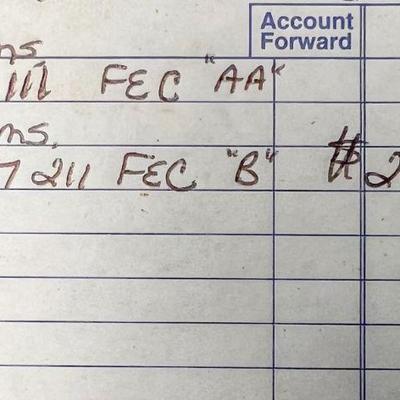 Account
Forward
ms,
111 FEC "AA"
ms,
7 211 FEC "B" # 2